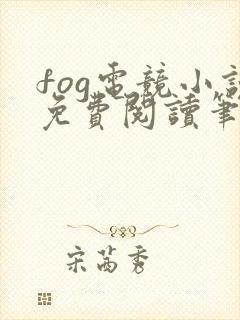 fog電競小說
免費閱讀筆
宋茜秀